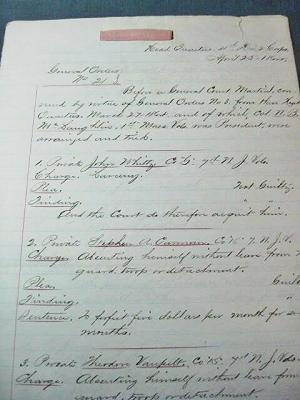 Head Quarters 4th Div 2 Corps
April 25 - 1864.
General Orders
No 21
Before a General Court Martial, con
vened by virtue of General Orders No 8 from these Head
Quarters. March 27. 1864. and of which, Col. R.
Mc Laughlin. 1st Mass Vols was President, were
arraigned and tried.
1. Private John Whitty Co "G" 7th N. J. Vols
Charge. Larceny.
Plea. Not Guilty.
Finding. " "
And the Court do therefore acquit him.
2. Private Stephen A. Co "K" 7 N. J. V.
Charge. Absenting himself without leave from
guard, troop or detachment.
Plea Guilty
Finding. "
Sentence. To forfeit five dollars per month for
months.
3. Private Theodore Co "K" 7th N. J. Vols
Charge. Absenting himself without leave from
guard, troop or detachment.